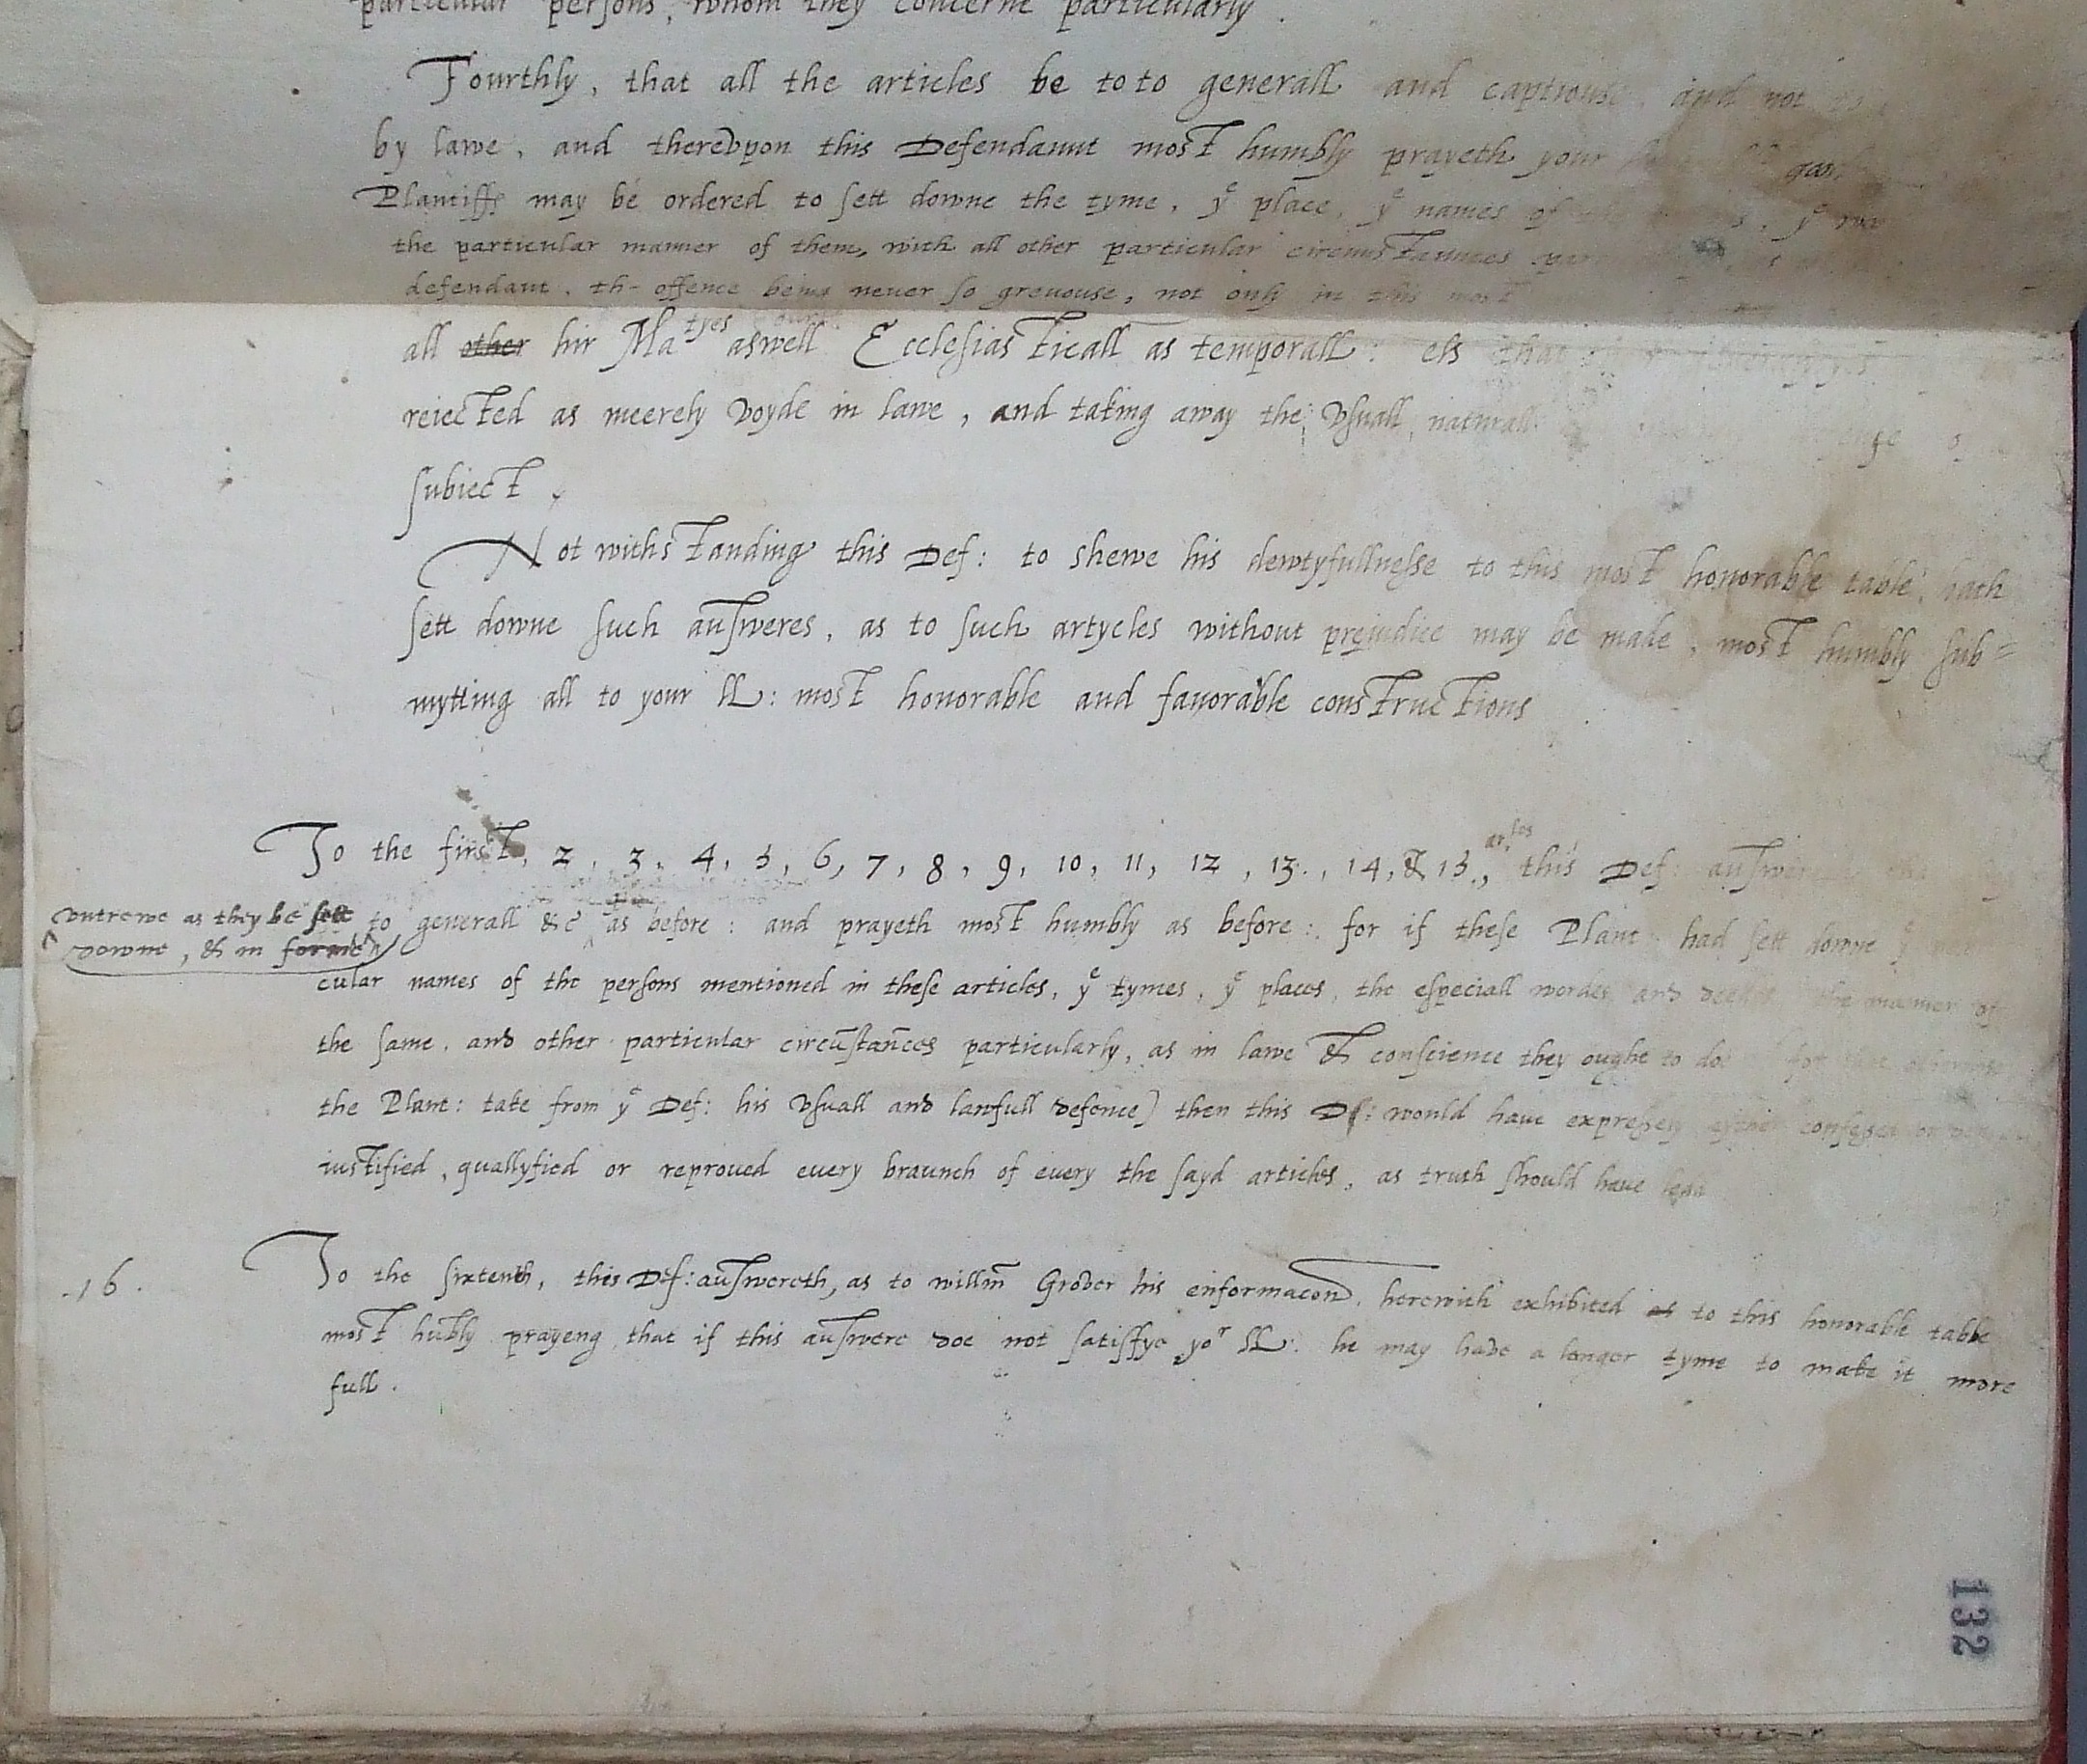 particular persons, whom they concerne particularly.
Fourthly, that all the articles be to to generall and captiouse, and not
by lawe, and therevpon this Defendaunt most humbly prayeth your
Plantiffs may be ordered to sett downe the tyme, yͤ place, yͤ names of yͤ
the particular manner of them, with all other particular circumstaunces
defendant, th- offence being never so greuouse, not only in this most
all other hir Maᵗʸᵉˢ courts aswell Ecclesiasticall as temporall: els that
reiected as meerely voyde in lawe, and taking away the vsuall, naturall
subiect.
Notwithstanding this Def: to shewe his dewtyfullnesse to this most honorable table, hath
sett downe such answeres, as to such artycles without prejudice may be made, most humbly sub=
mytting all to your LL: most honorable and favorable constructions
To the first, 2, 3, 4, 5, 6, 7, 8, 9, 10, 11, 12, 13., 14, & 15., arˡᵉˢ this Def:
vntrewe as they be sett
downe, & in forme
to generall &c as before: and prayeth most humbly as before: for if these Plant had sett downe yͤ
cular names of the persons mentioned in these articles, yͤ tymes, yͤ places, the especiall wordes and deedes the manner of
the same, and other particular circūstān̄ces particularly, as in lawe & conscience they ought to doe for
the Plant: take from yͤ Def: his vsuall and lawfull defence) then this Def: would have expressely eyther confessed or
iustified, quallyfied or reproued euery braunch of euery the sayd articles, as truth should haue
16.
To the sixtenth, this Def: answereth, as to willm̄ Grover his enformacon, herewith exhibited as to this honorable table
most hūbly prayeng that if this answere doe not satisfye yoʳ LL: he may have a longer tyme to make it more
full.
132